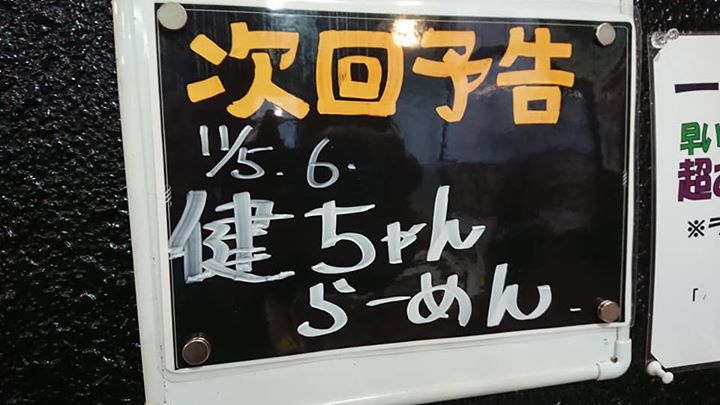 次回予告
11/5.6.
健ちゃん
らーめん
早い
超
※ラ